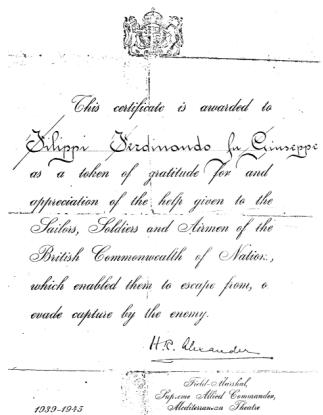 This certificate is awarded to
Filippi Ferdinando fu Giuseppe
as a token of gratitude for and
appreciation of the help given to the
Sailors, Soldiers and Airmen of the
British Commonwealth of Nation:,
which enabled them to escape from, o
evade capture by the enemy.
H.R. Alexander
Field-Marshal,
Supreme Allied Commander,
1939-1945 Mediterranean Theatre